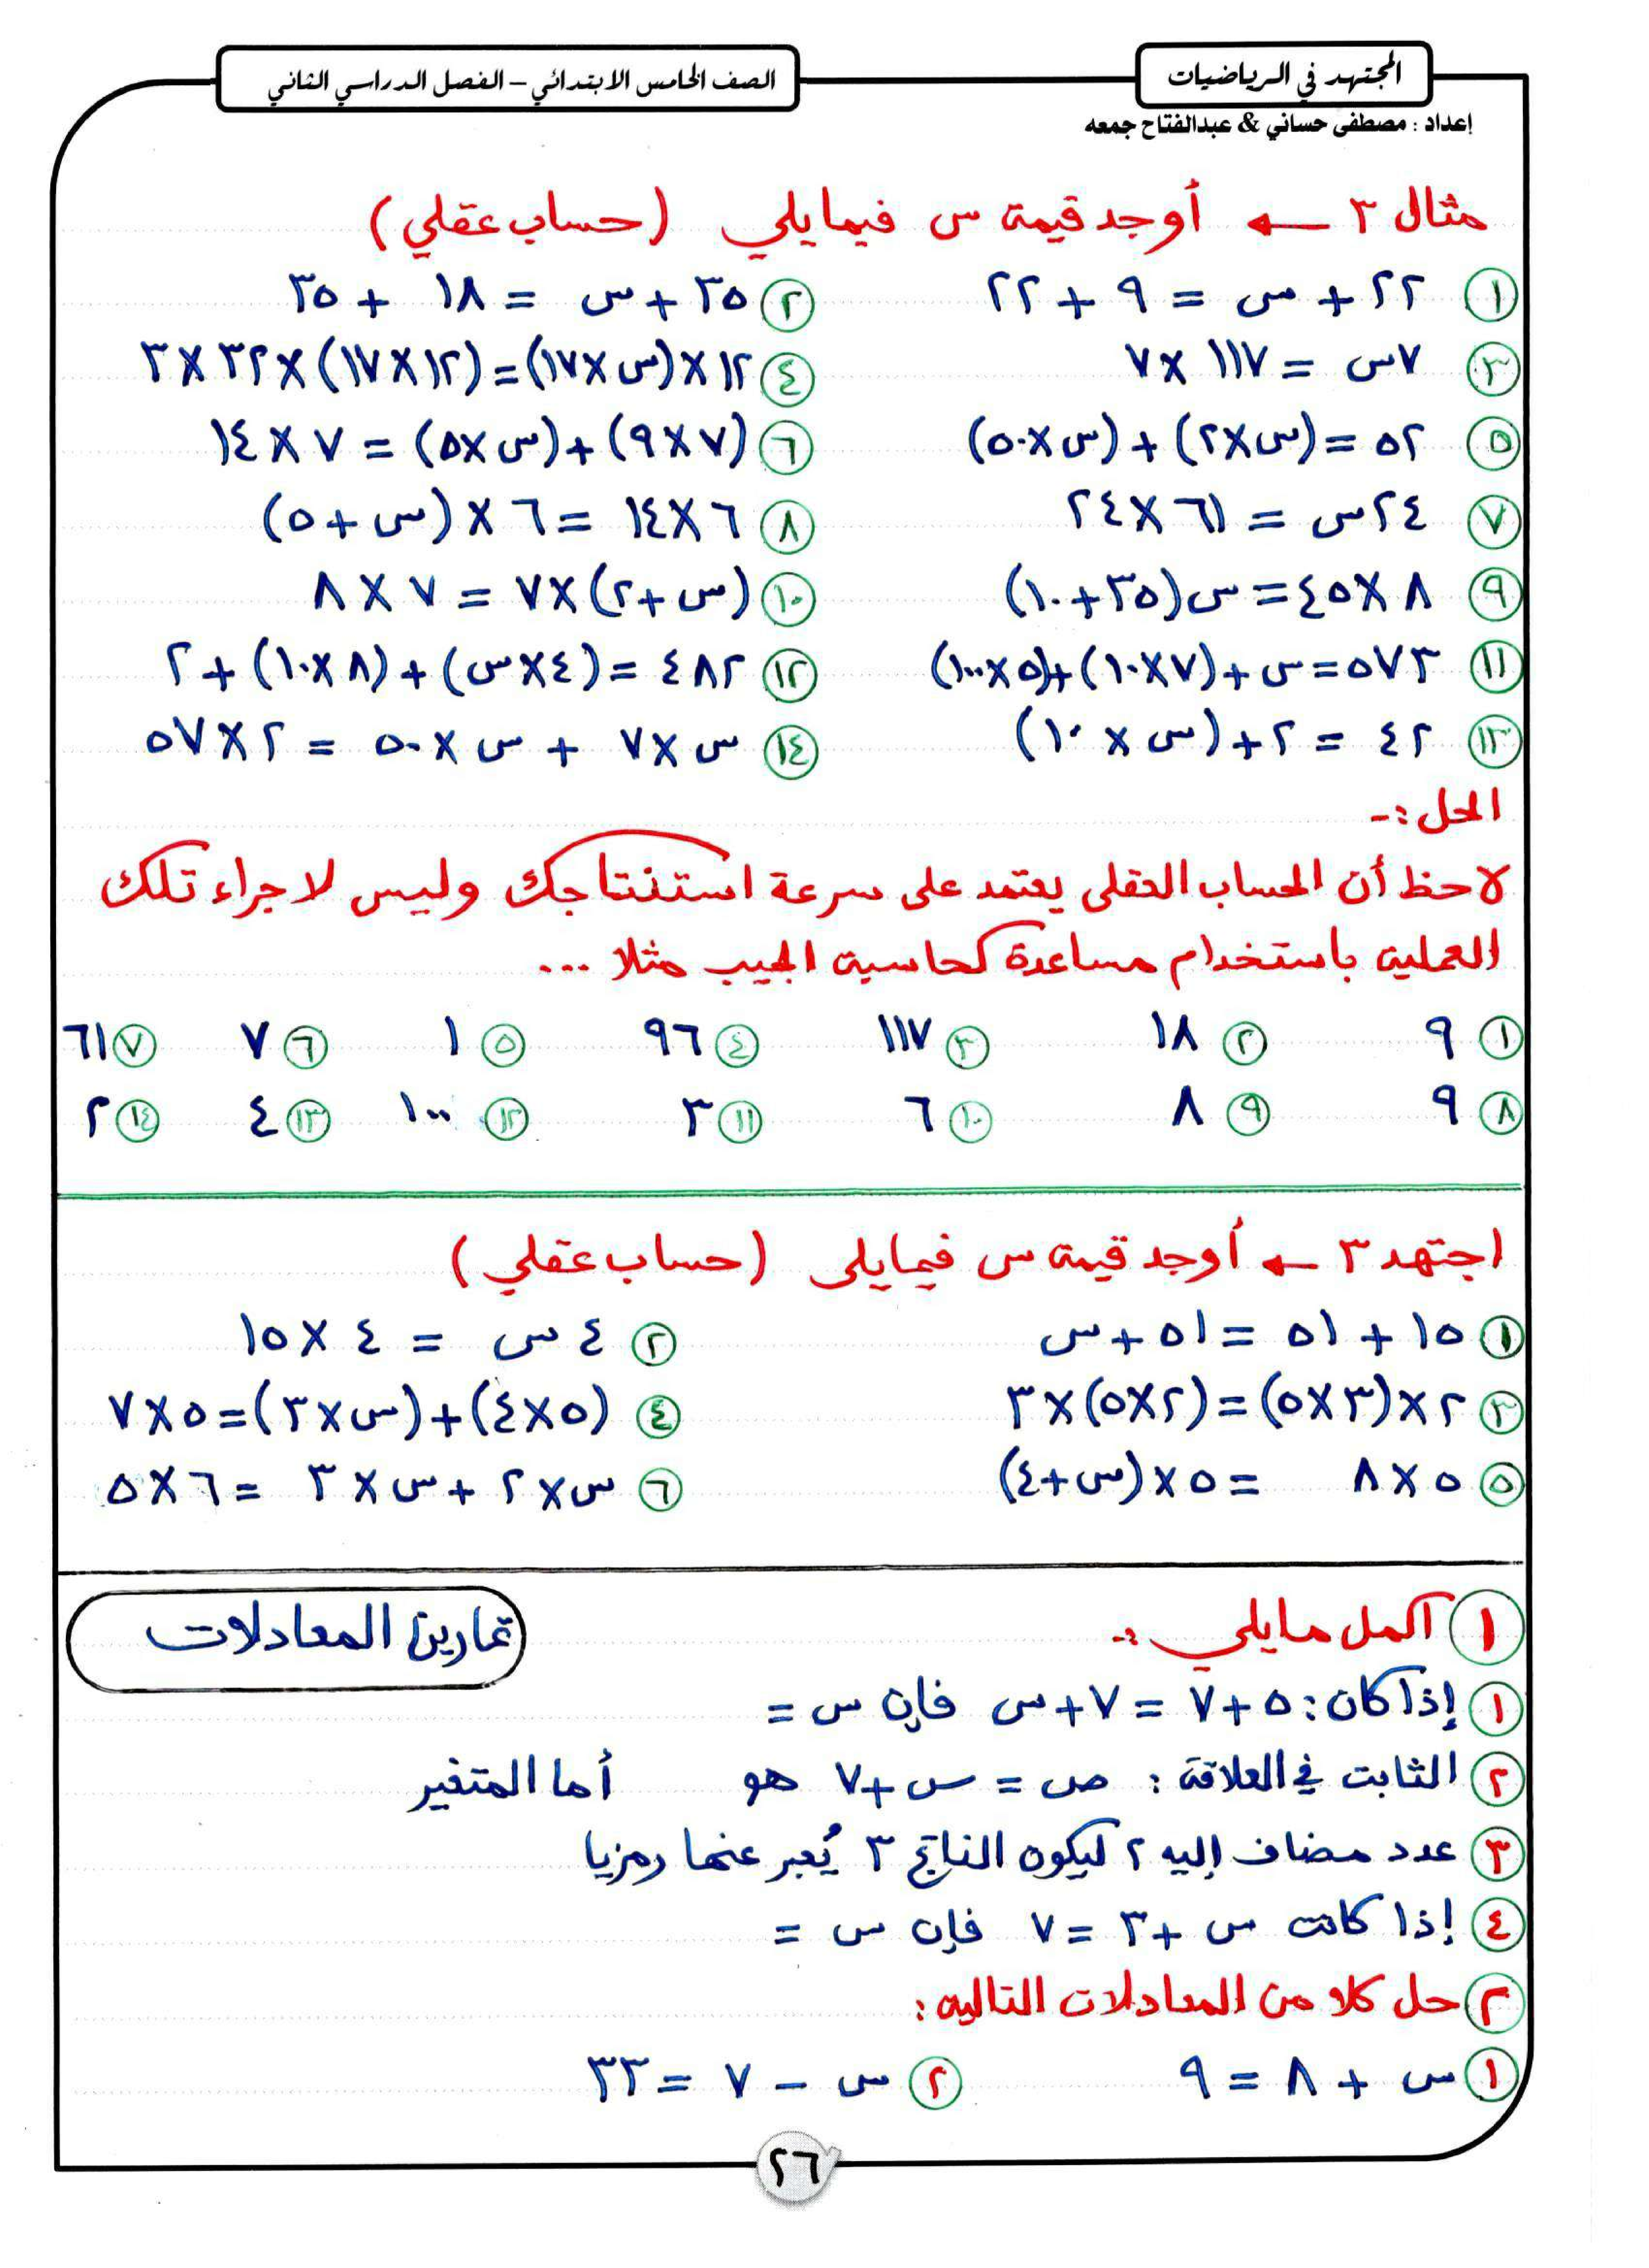 المجتهد في الرياضيات
الصف الخامس الابتدائي – الفصل الدراسي الثاني
إعداد : مصطفى حساني & عبدالفتاح جمعه
مثال ٣ ← أوجد قيمة س فيما يلي (حساب عقلي)
١ ٢٢ + س = ٩ + ٢٢
٢ ٣٥ + س = ١٨ + ٣٥
٣ ٧س = ١١٧ × ٧
٤ ١٢ × (س × ١٧) = (١٢ × ١٧) × ٣٢ × ٣
٥ ٥٢ = (س × ٢) + (س × ٥٠)
٦ (٧ × ٩) + (س × ٥) = ٧ × ١٤
٧ ٢٤س = ٦١ × ٢٤
٨ ٦ × ١٤ = ٦ × (س + ٥)
٩ ٨ × ٤٥ = س(٣٥ + ١٠)
١٠ (س + ٢) × ٧ = ٧ × ٨
١١ ٥٧٣ = س + (٧ × ١٠) + (٥ × ١٠٠)
١٢ ٤٨٢ = (٤ × س) + (٨ × ١٠) + ٢
١٣ ٤٢ = ٢ + (س × ١٠)
١٤ س × ٧ + س × ٥٠ = ٢ × ٥٧
الحل :-
لاحظ أن الحساب العقلى يعتمد على سرعة استنتاجك وليس لاجراء تلك
العملية باستخدام مساعدة كحاسبة الجيب مثلا ...
١ ٩ ٢ ١٨ ٣ ١١٧ ٤ ٩٦ ٥ ١ ٦ ٧ ٧ ٦١
٨ ٩ ٩ ٨ ١٠ ٦ ١١ ٣ ١٢ ١٠٠ ١٣ ٤ ١٤ ٢
اجتهد ٣ ← أوجد قيمة س فيما يلى (حساب عقلي)
١ ١٥ + ٥١ = ٥١ + س
٢ ٤ س = ٤ × ١٥
٣ ٢ × (٣ × ٥) = (٢ × ٥) × ٣
٤ (٥ × ٤) + (س × ٣) = ٥ × ٧
٥ ٥ × ٨ = ٥ × (س + ٤)
٦ س × ٢ + س × ٣ = ٦ × ٥
تمارين المعادلات
١ أكمل ما يلي :-
١ إذا كان : ٥ + ٧ = ٧ + س فإن س =
٢ الثابت في العلاقة : ص = س + ٧ هو أما المتغير
٣ عدد مضاف إليه ٢ ليكون الناتج ٣ يُعبر عنها رمزيا
٤ إذا كانت س + ٣ = ٧ فإن س =
٢ حل كلا من المعادلات التالية :
١ س + ٨ = ٩
٢ س – ٧ = ٣٣
٢٦